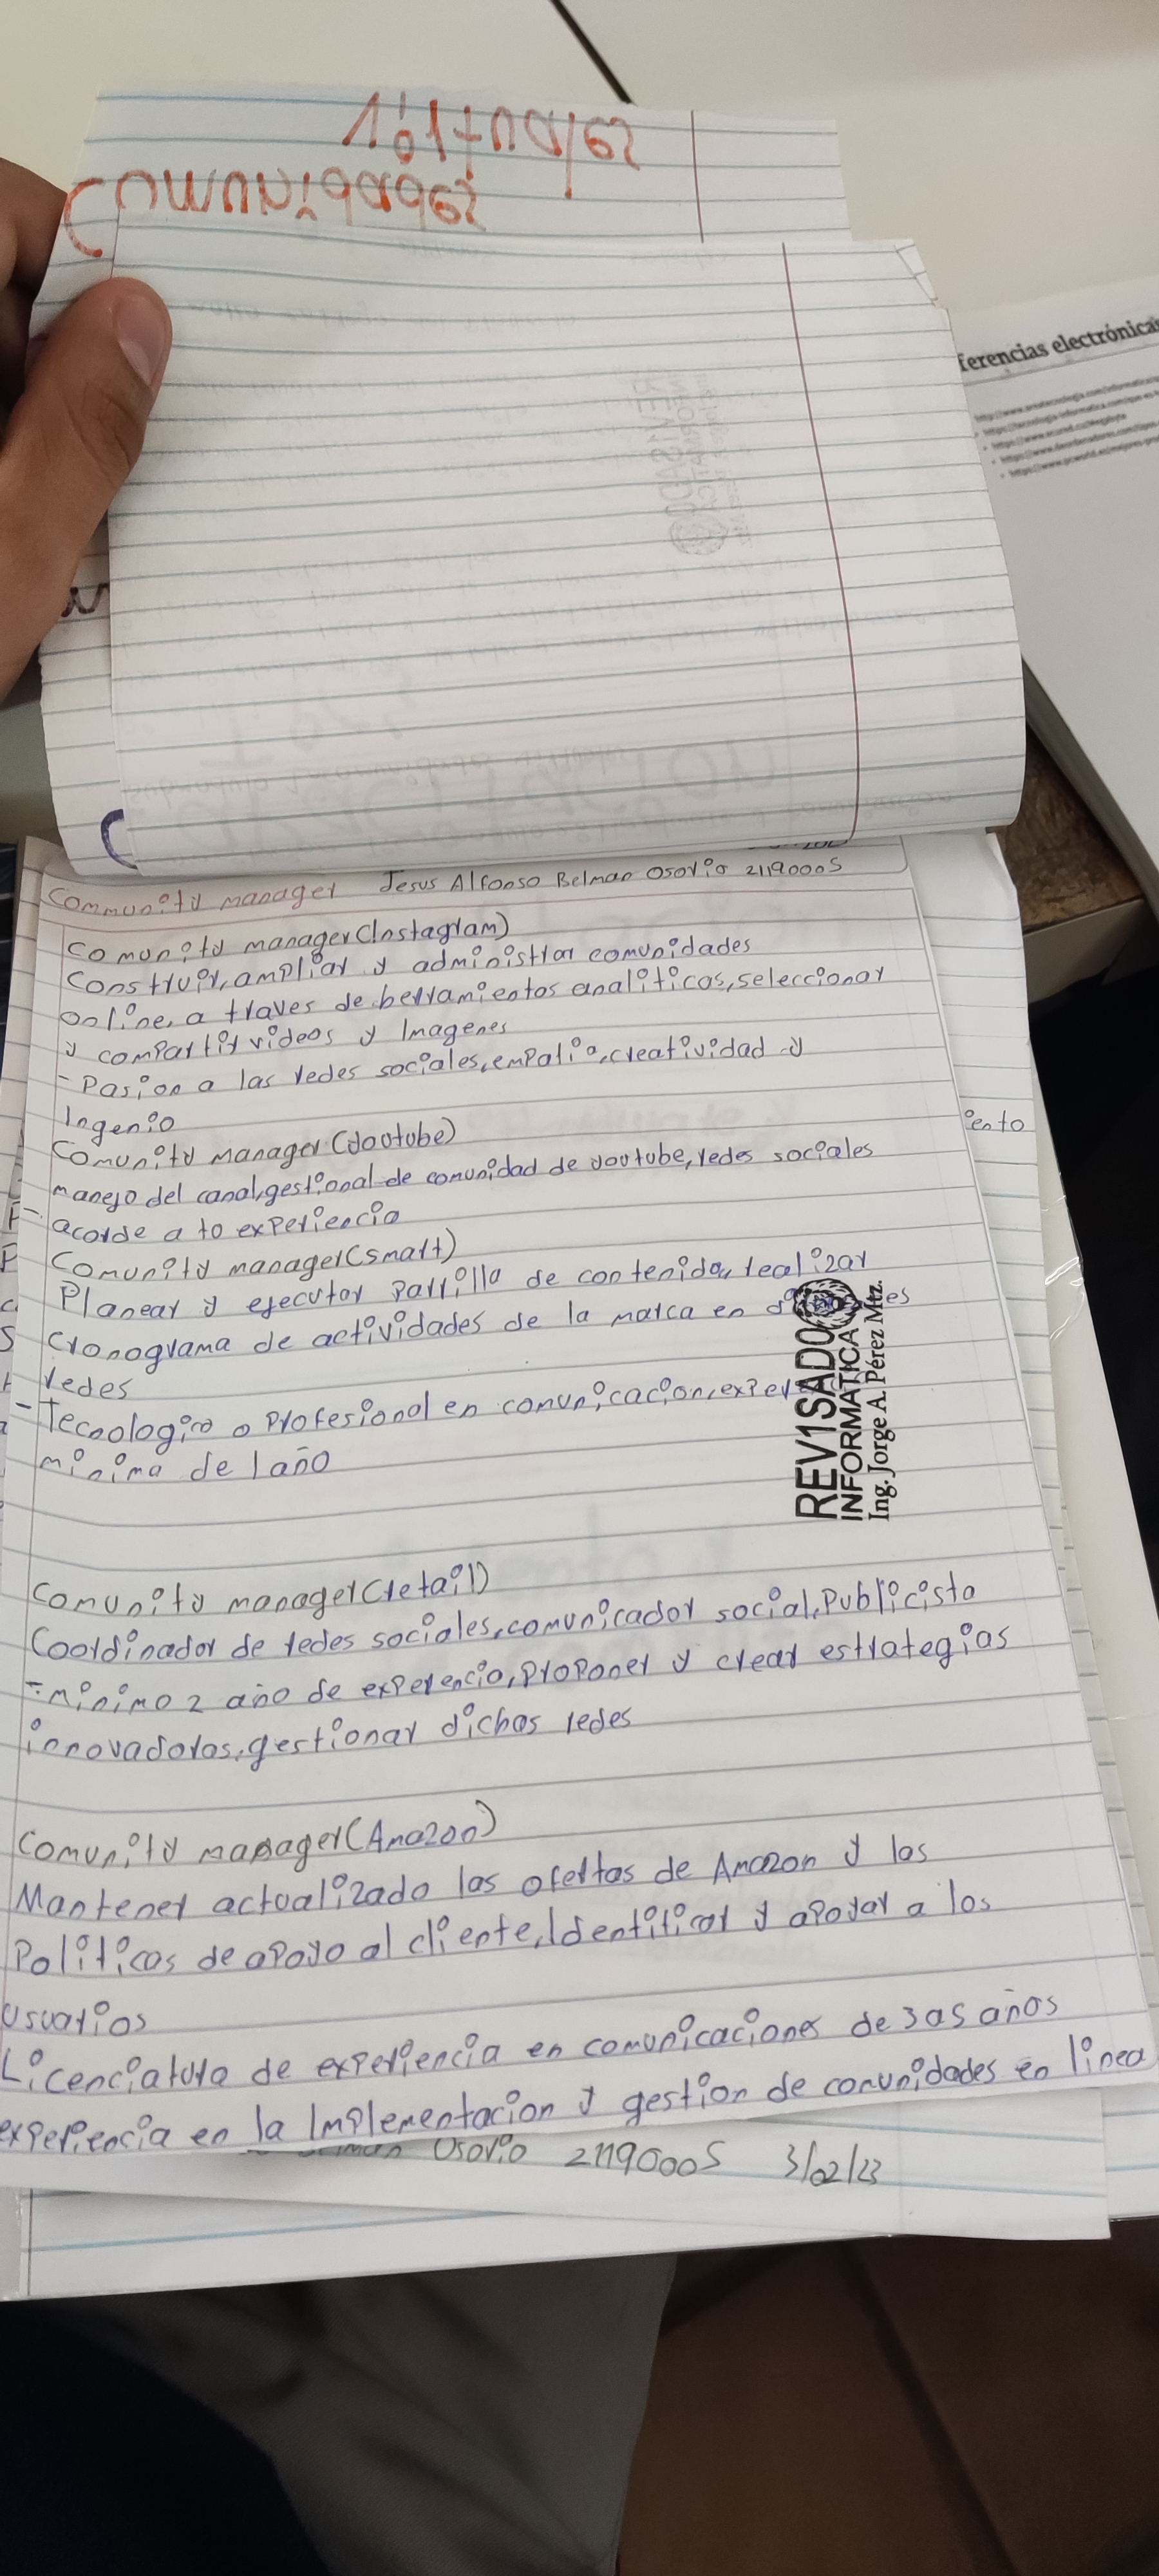 Comunidades
virtuales
ferencias electrónicas
Community manager Jesus Alfonso Belman Osorio 21190005
Comunity manager(Instagram)
Construir, ampliar y administrar comunidades
online, a traves de herramientos analiticas, seleccionar
y compartir videos y Imagenes
- Pasion a las redes sociales, empatia, creatividad y
Ingenio
Comunity manager(Yootube)
manejo del canal, gestional de comunidad de yootube, redes sociales
- acorde a to experiencia
Comunity manager(smart)
Planear y ejecutar parrilla de contenido, realizar
cronograma de actividades de la marca en
redes
- Tecnologico o Profesional en comunicacion,
minima de 1 año
REV1SADO
INFORMATICA
Ing. Jorge A. Pérez Mtz.
Comunity manager(retail)
Coordinador de redes sociales, comunicador social, Publicista
- minimo 2 año de experencia, proponer y crear estrategias
innovadoras, gestionar dichas redes
Comunity manager(Amazon)
Mantener actualizado las ofertas de Amazon y las
Politicas de apoyo al cliente, Identificar y apoyar a los
usuarios
Licenciatura de experiencia en comunicaciones de 3 a 5 años
experiencia en la Implementacion y gestion de comunidades en linea
Osorio 21190005 3/02/23
iento